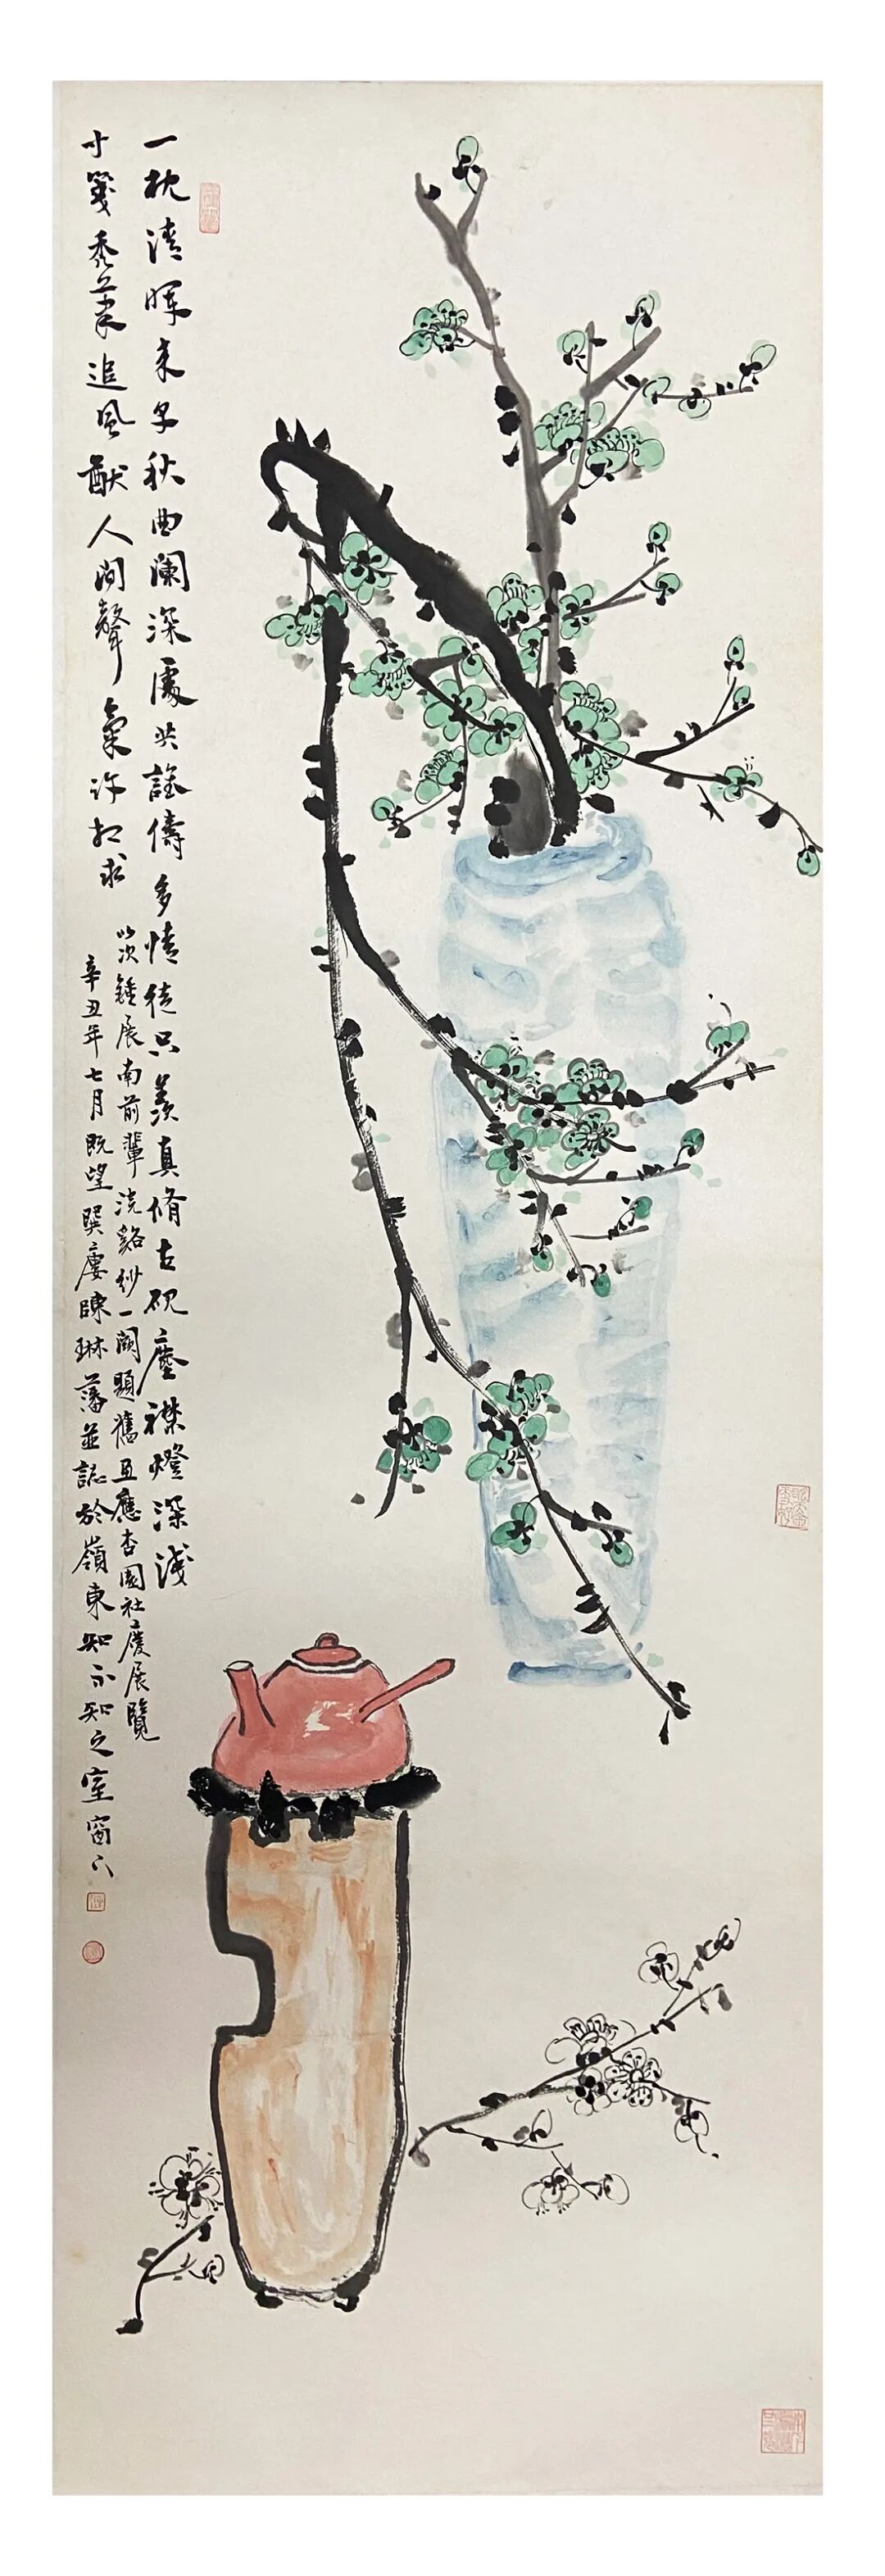 一枕清暉未了秋曲闌深處共誰儔多情徒只羨真脩古硯塵襟燈深淺
寸箋禿筆追風猷人間聲氣許相求
以次鍾展南前輩浣谿紗一闋題舊且應杏園社慶展覽
辛丑年七月既望巽廔陳琳藩並誌於嶺東知不知之室窗下